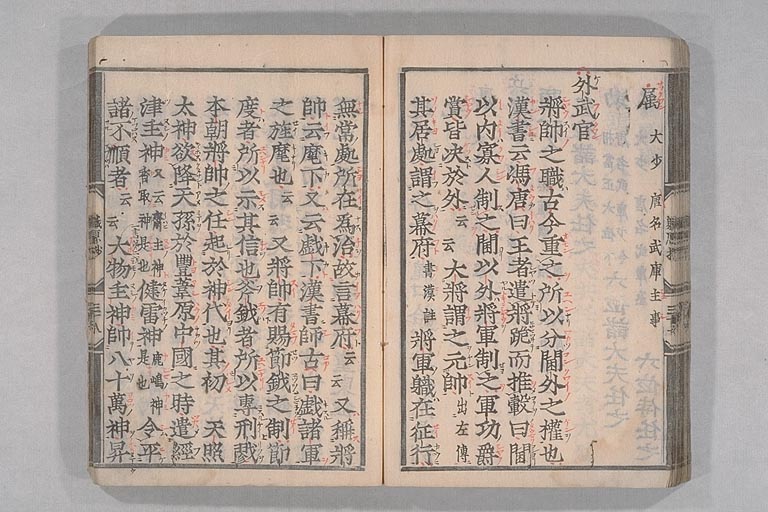 属 大少 唐名武庫主事
外武官
將帥之職古今重之所以分閫外之權也
漢書云馮唐曰王者遣將跪而推轂曰閫
以内寡人制之閫以外將軍制之軍功爵
賞皆决於外云云大將謂之元帥出左傳
其居処謂之幕府書漢註將軍職在征行
無常処所在爲治故言幕府云云又稱將
帥云麾下又云戲下漢書師古曰戲諸軍
之旌麾也云云又將帥有賜節鉞之制節
度者所以示其信也斧鉞者所以專刑戮
本朝將帥之任起於神代也其初 天照
太神欲降天孫於豐葦原中國之時遣經
津主神又云齋主神香取神是也健雷神鹿嶋神是也令平
諸不順者云云大物主神帥八十萬神昇